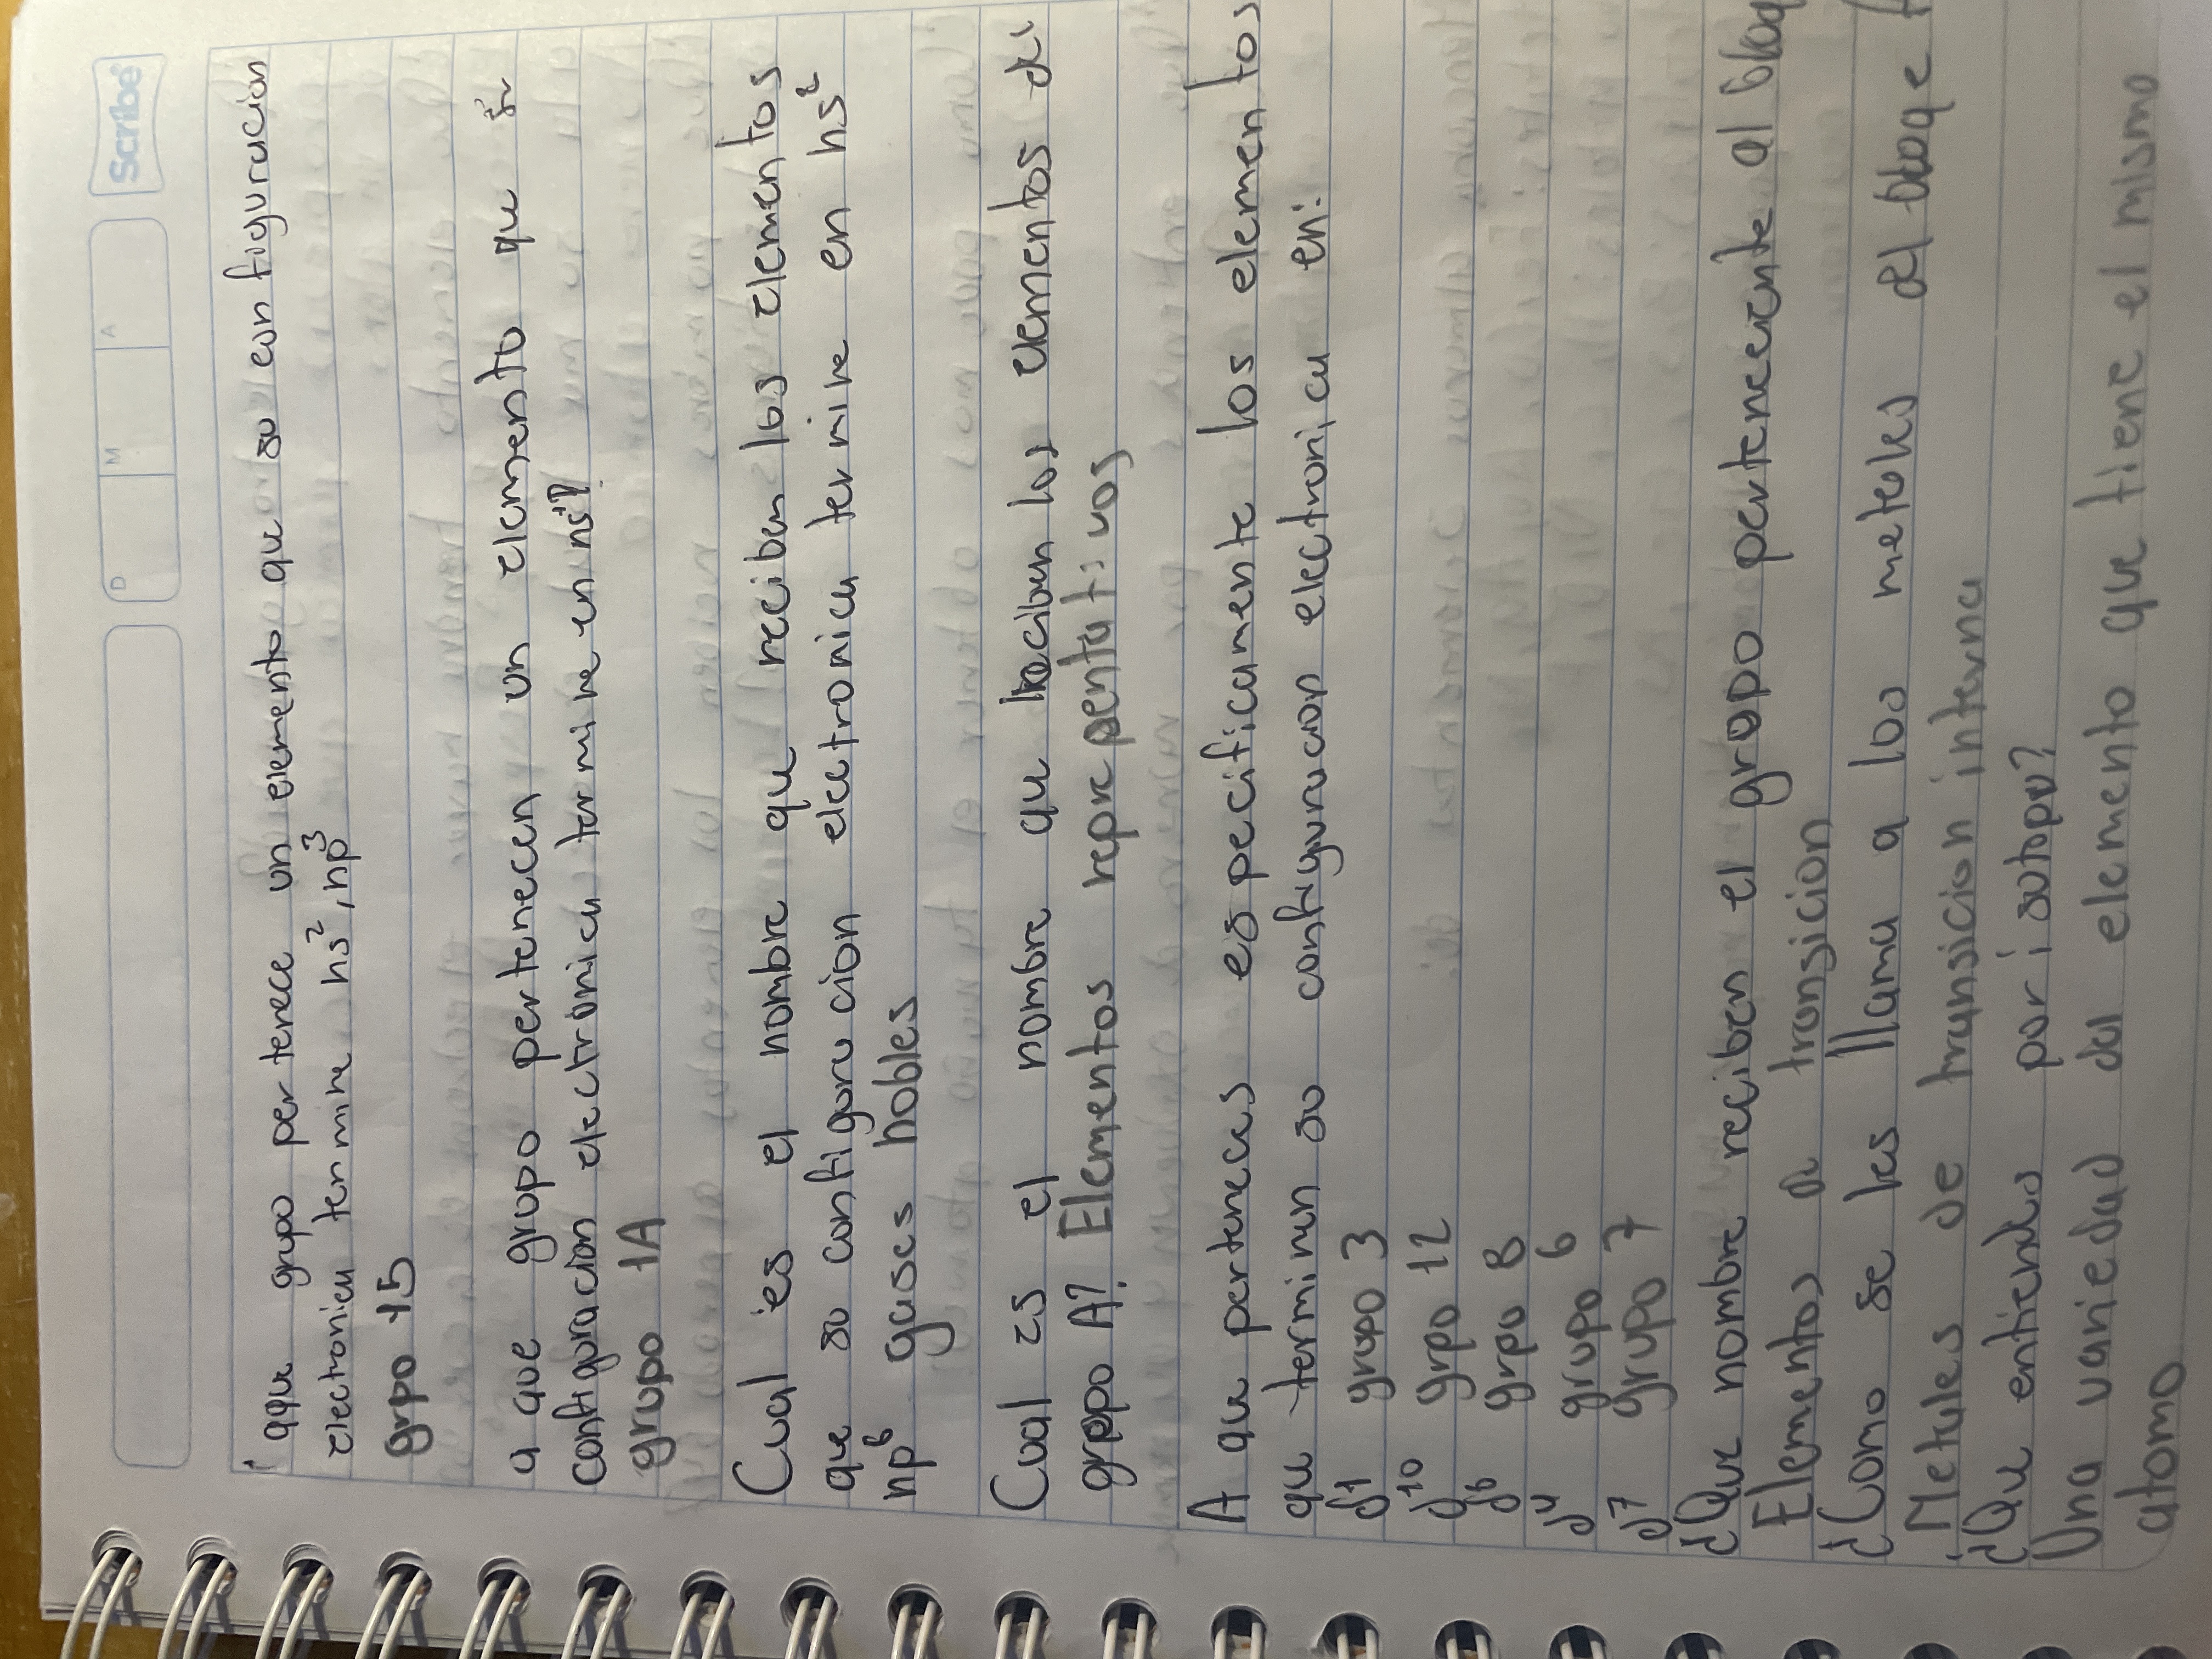 Scribe
D M A
¿ aque grupo pertenece un elemento que su configuracion
electronica termine ns², np³
grpo 15
a que grupo pertenecen un elemento que su
configuracion electronica termine en ns¹?
grupo 1A
Cual es el nombre que reciben los elementos
que su configuracion electronica termine en ns²
np⁶ gases nobles
Cual es el nombre que reciben los elementos del
grupo A? Elementos reprepentativos
A que perteneces especificamente los elementos
que terminan su configuracion electronica en:
d¹ grupo 3
d¹⁰ grpo 12
d⁶ grpo 8
d⁴ grupo 6
d⁷ grupo 7
¿Que nombre reciben el grupo perteneciente al bloq
Elementos de transicion
¿Como se les llama a los metales del bloque f
Metales de transicion interna
¿Que entiendes por isotopo?
Una variedad del elemento que tiene el mismo
atomo